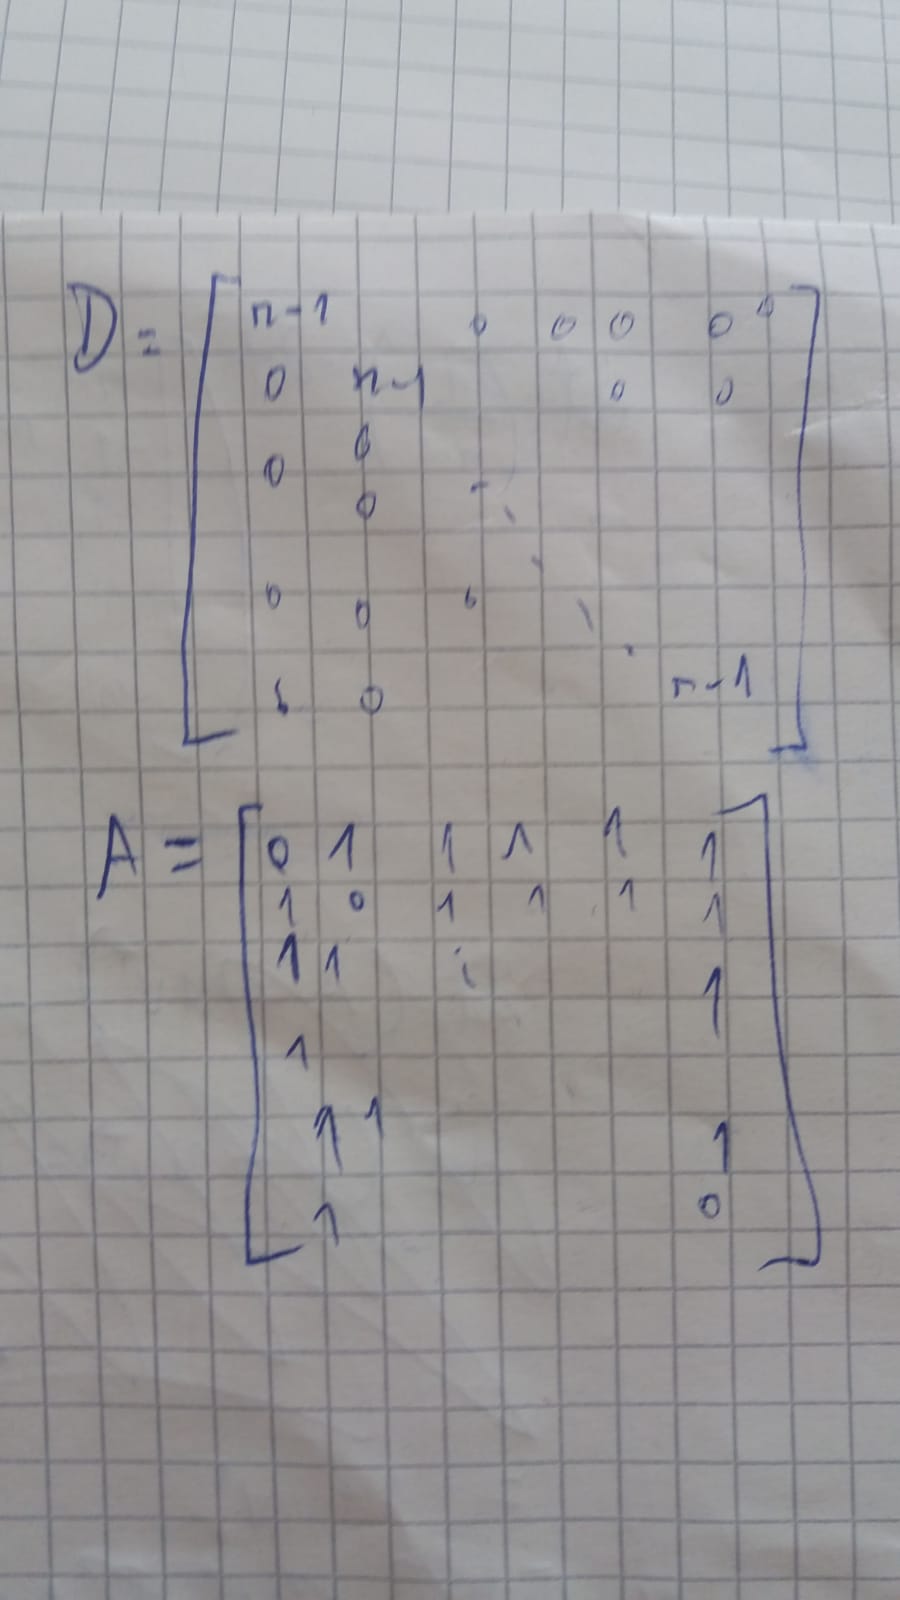 D = [ n-1 0 0 0 0 0
0 n-1 0 0
0 0
0
0 0 0
0 0 n-1 ]
A = [ 0 1 1 1 1 1
1 0 1 1 1 1
1 1 1
1
1 1 1
1 0 ]